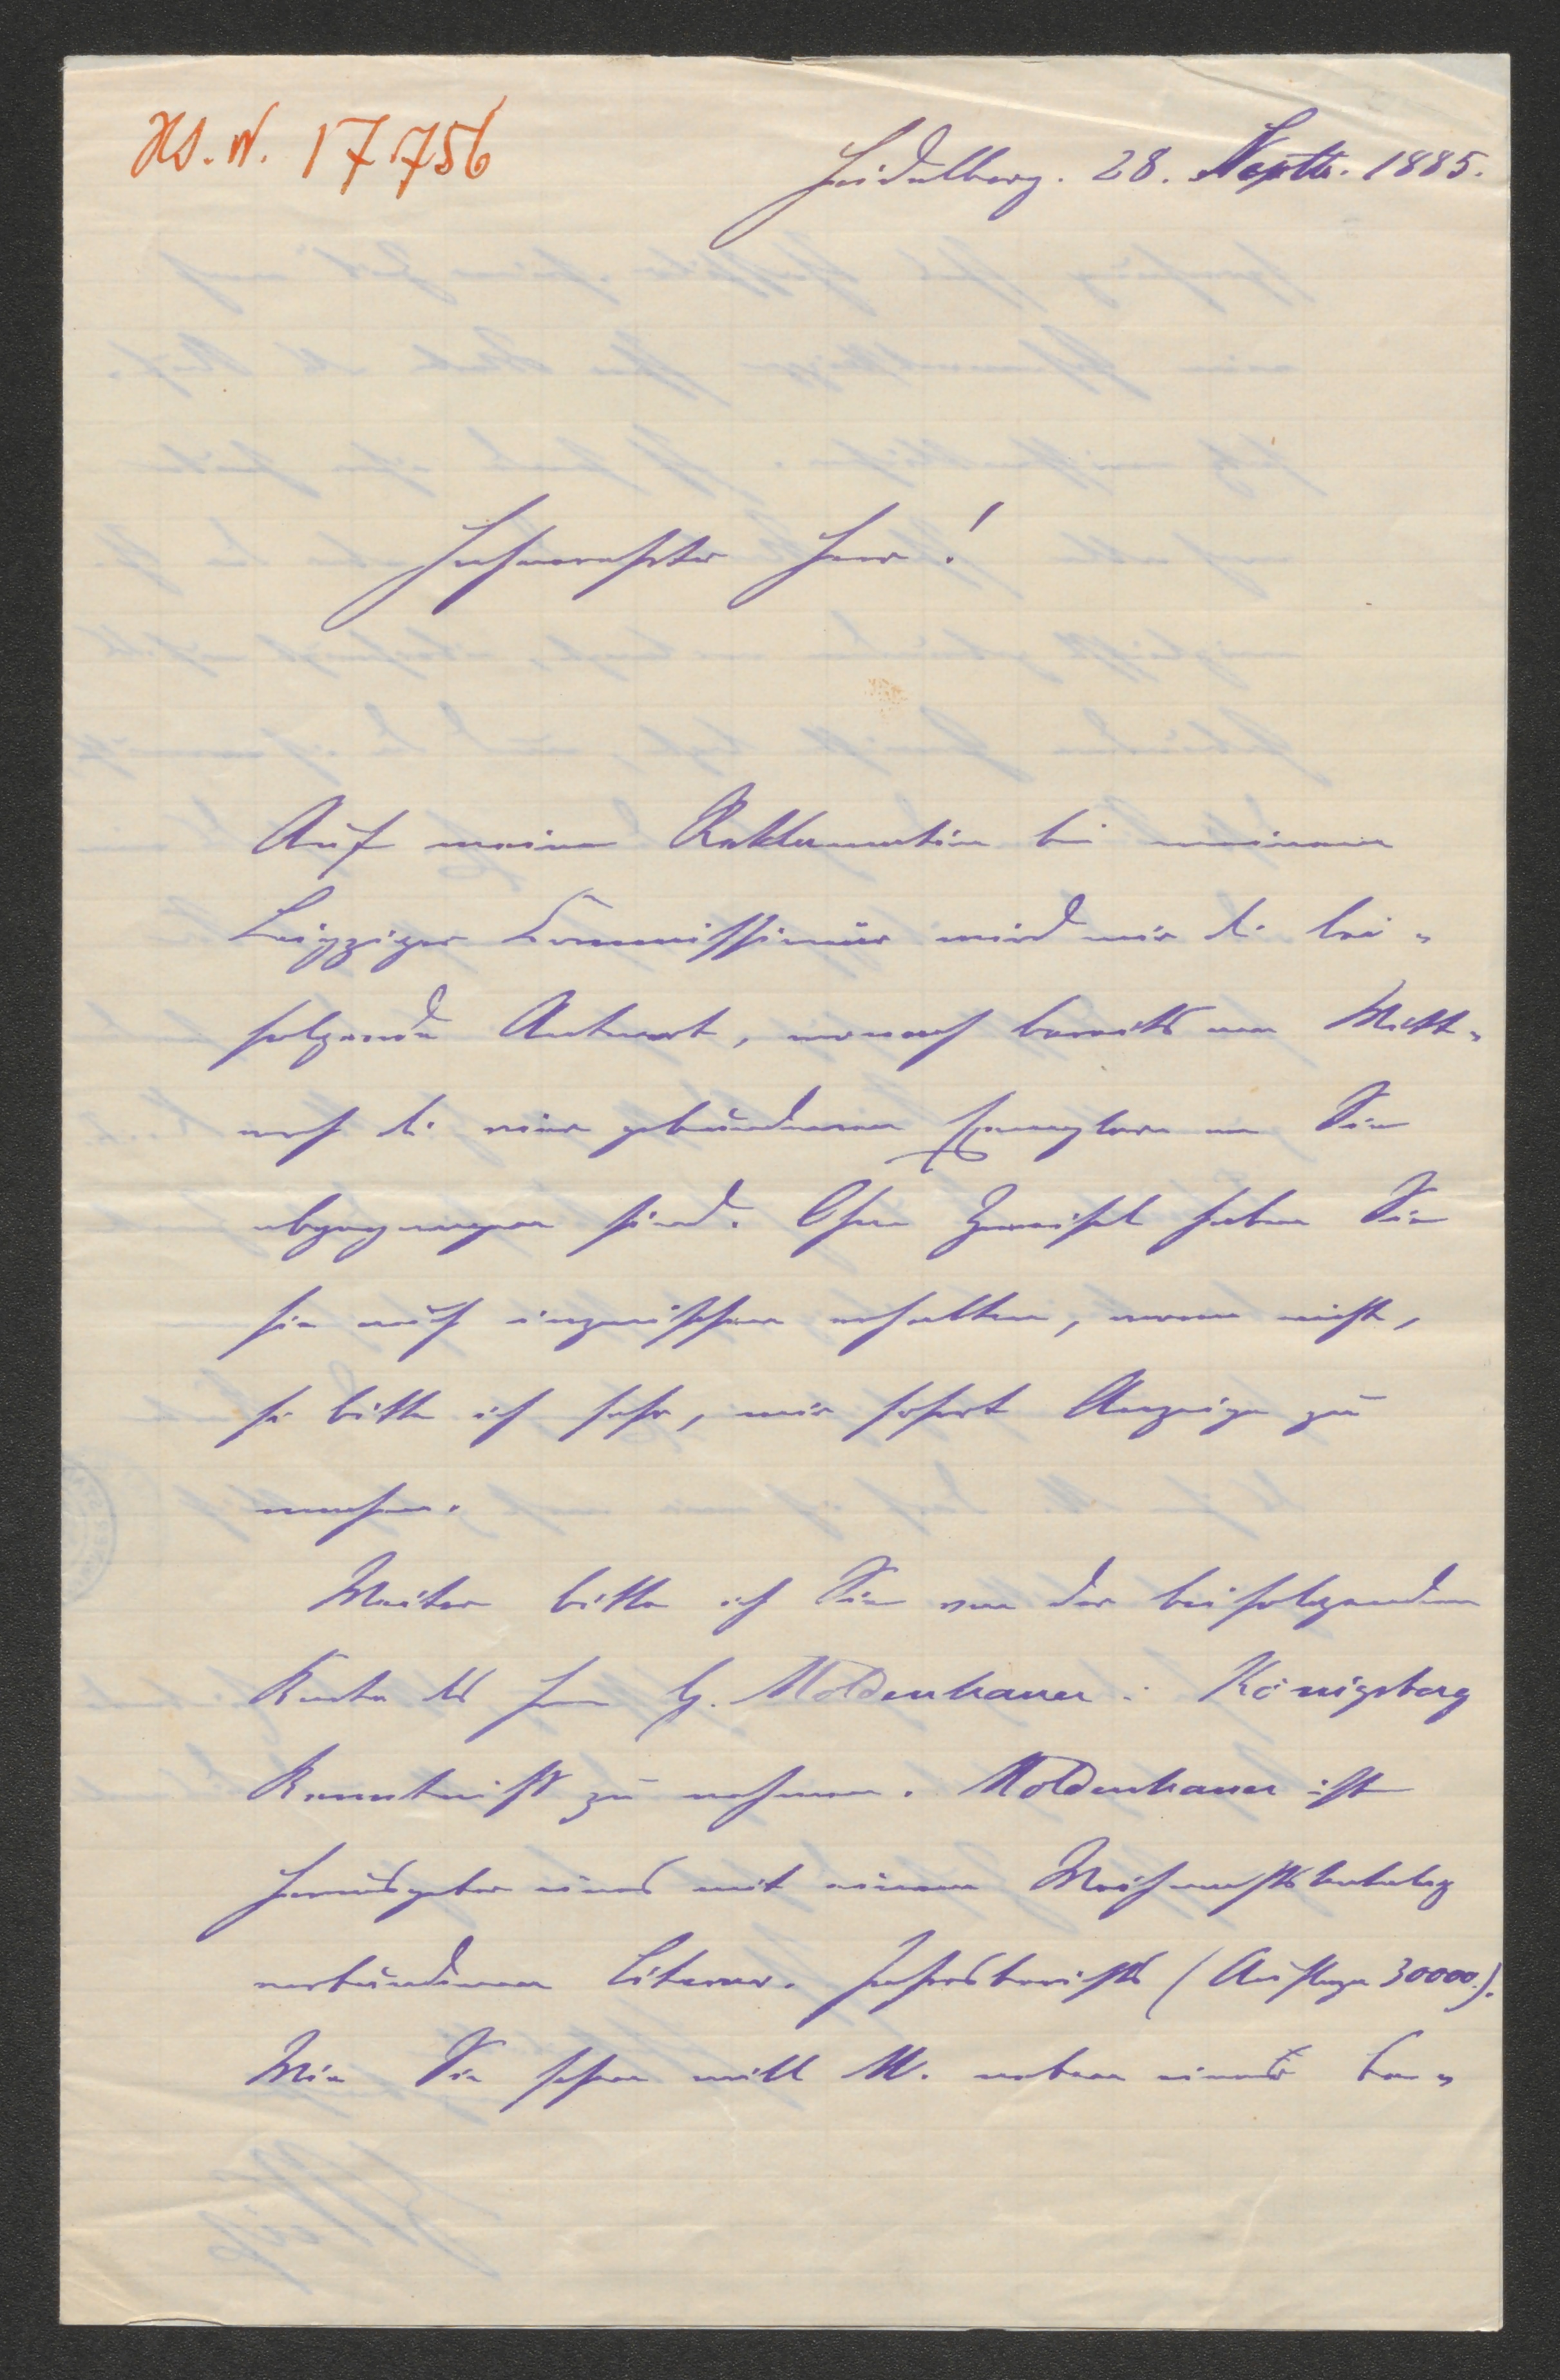 HS. N. 17756
Heidelberg. 28. Septb. 1885.
Hochverehrter Herr!
Auf meine Reklamation bei meinem
Leipziger Commissionär wird mir die bei-
folgende Antwort, wonach bereits am Mitt-
woch die vier gebundenen Exemplare an Sie
abgegangen sind. Ohne Zweifel haben Sie
sie auch inzwischen erhalten, wenn nicht,
so bitte ich sehr, mir sofort Anzeige zu
machen.
Weiter bitte ich Sie von der beifolgenden
Karte des Herrn G. Moldenhauer i. Königsberg
Kenntniss zu nehmen. Moldenhauer ist
Herausgeber eines mit einem Weihnachtskatalog
verbundenen Literar. Jahresberichts (Auflage 30000).
Wie Sie sehen will M. neben einer